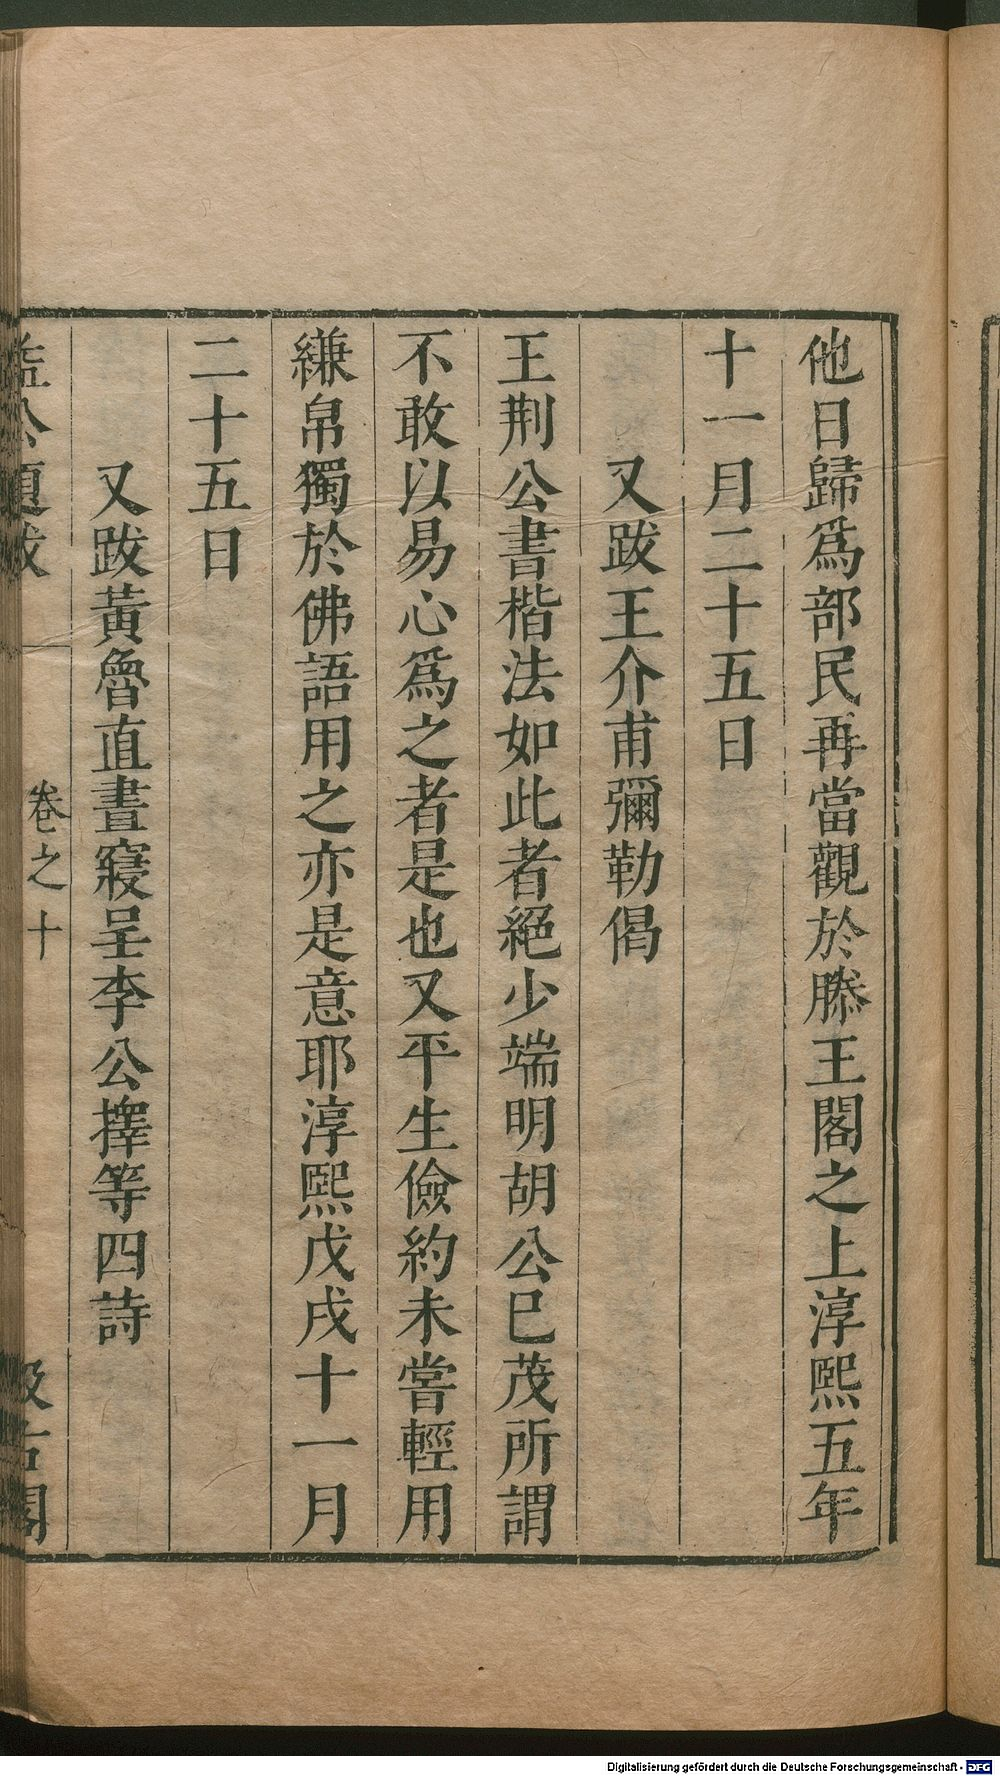 他日歸爲部民再當觀於滕王閣之上淳熙五年
十一月二十五日
又跋王介甫彌勒偈
王荆公書楷法如此者絕少端明胡公已茂所謂
不敢以易心爲之者是也又平生儉約未嘗輕用
縑帛獨於佛語用之亦是意耶淳熙戊戌十一月
二十五日
又跋黃魯直晝寢呈李公擇等四詩
益公題跋 卷之十 汲古閣
Digitalisierung gefördert durch die Deutsche Forschungsgemeinschaft - DFG